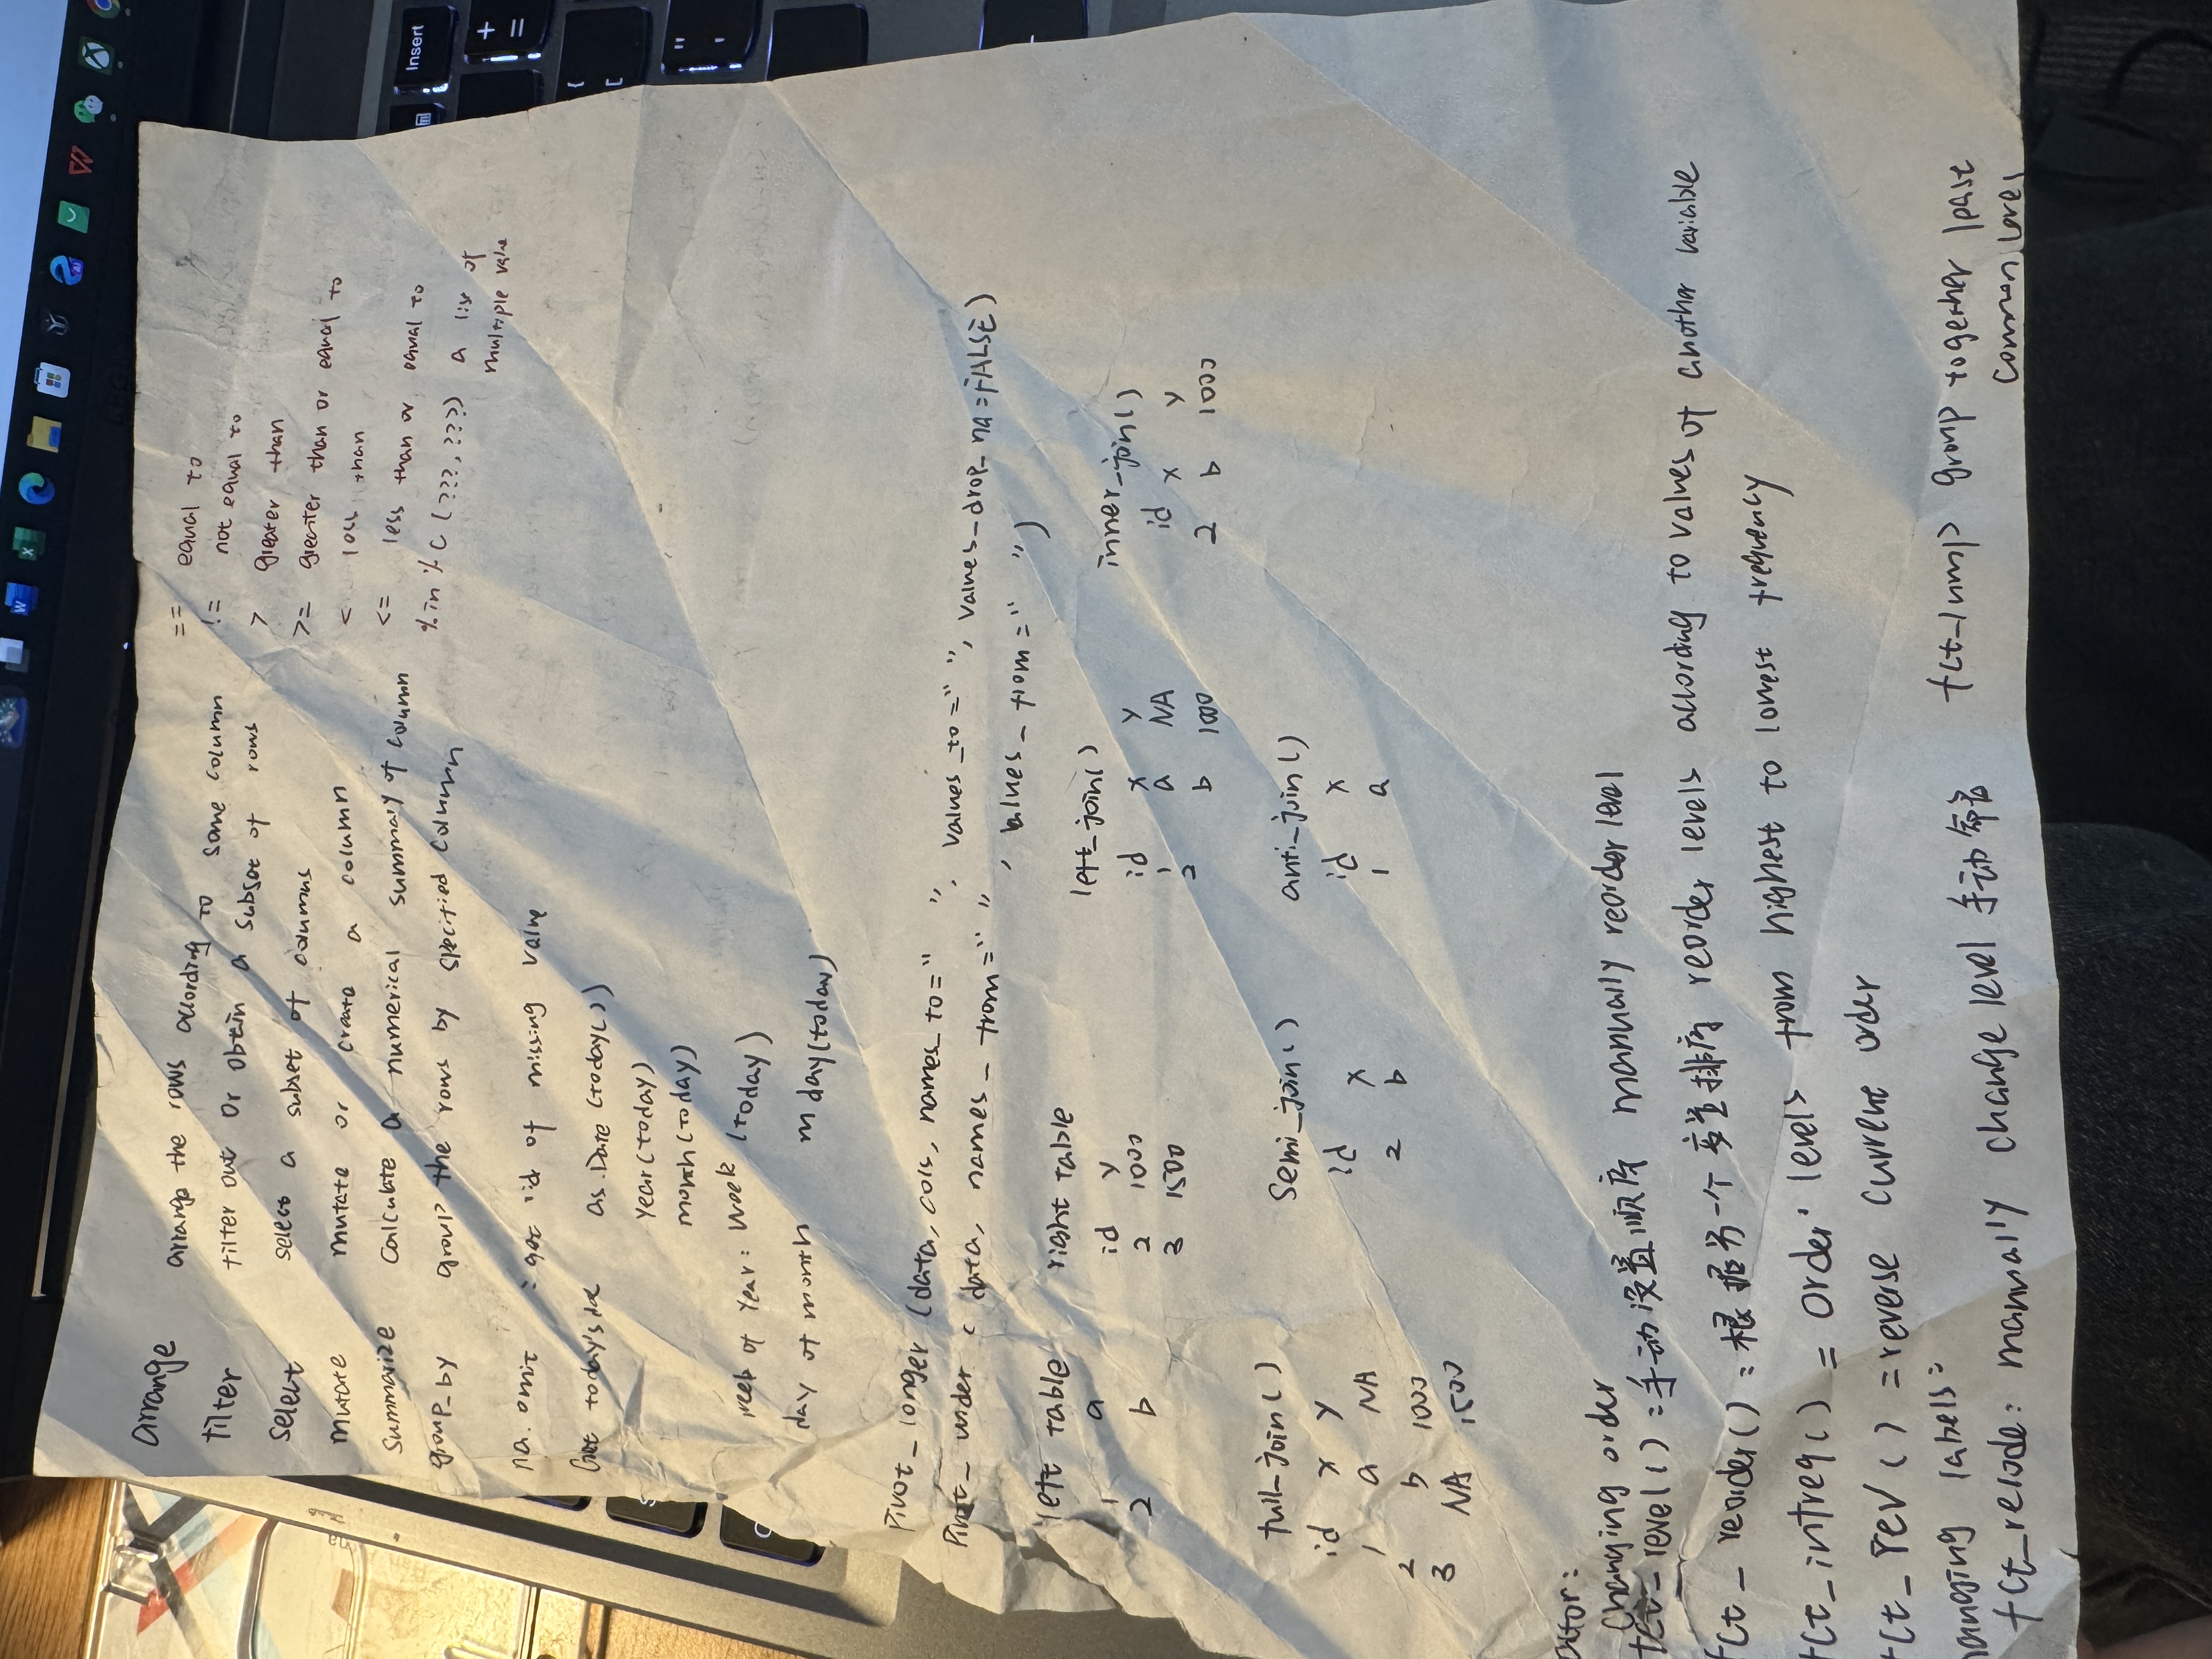 arrange arrange the rows according to some column
filter filter out or obtain a subset of rows
select select a subset of columns
mutate mutate or create a column
summarize calculate a numerical summary of column
group_by group the rows by specified column
== equal to
!= not equal to
> greater than
>= greater than or equal to
< less than
<= less than or equal to
%in% c(???,???) a list of
multiple value
na.omit : get rid of missing value
Get today's as.Date(today())
year(today)
month(today)
week of year: week (today)
day of month mday(today)
Pivot_longer (data, cols, names_to=" ", values_to=" ", values_drop_na=FALSE)
Pivot_wider ( data, names_from=" ", values_from=" ")
left table
1 a
2 b
right table
id y
2 1000
3 1500
left_join()
id x y
1 a NA
2 b 1000
inner_join()
id x y
2 b 1000
full_join()
id x y
1 a NA
2 b 1000
3 NA 1500
semi_join()
id x
2 b
anti_join()
id x
1 a
Changing order
fct_revel() : 手动设置顺序 manually reorder level
fct_reorder() : 根据另一个变量排序 reorder levels according to values of another variable
fct_infreq() = order levels from highest to lowest frequency
fct_rev() = reverse current order
hanging labels:
fct_recode: manually change level 手动命名
fct_lump group together least
common level
Insert
+
=
{
[
"
'